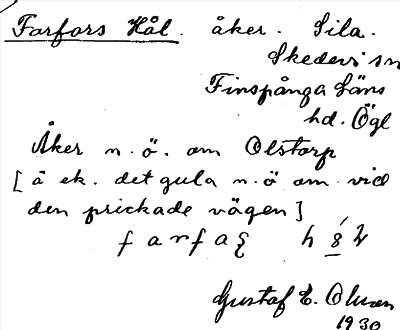 Farfors Hål. åker. Sila.
Skedevi sn
Finspånga läns
hd. Ögl
Åker n.ö. om Olstorp
[å ek. det gula n.ö om vid
den prickade vägen]
farfaş h
Gustaf E. Olsson
1930